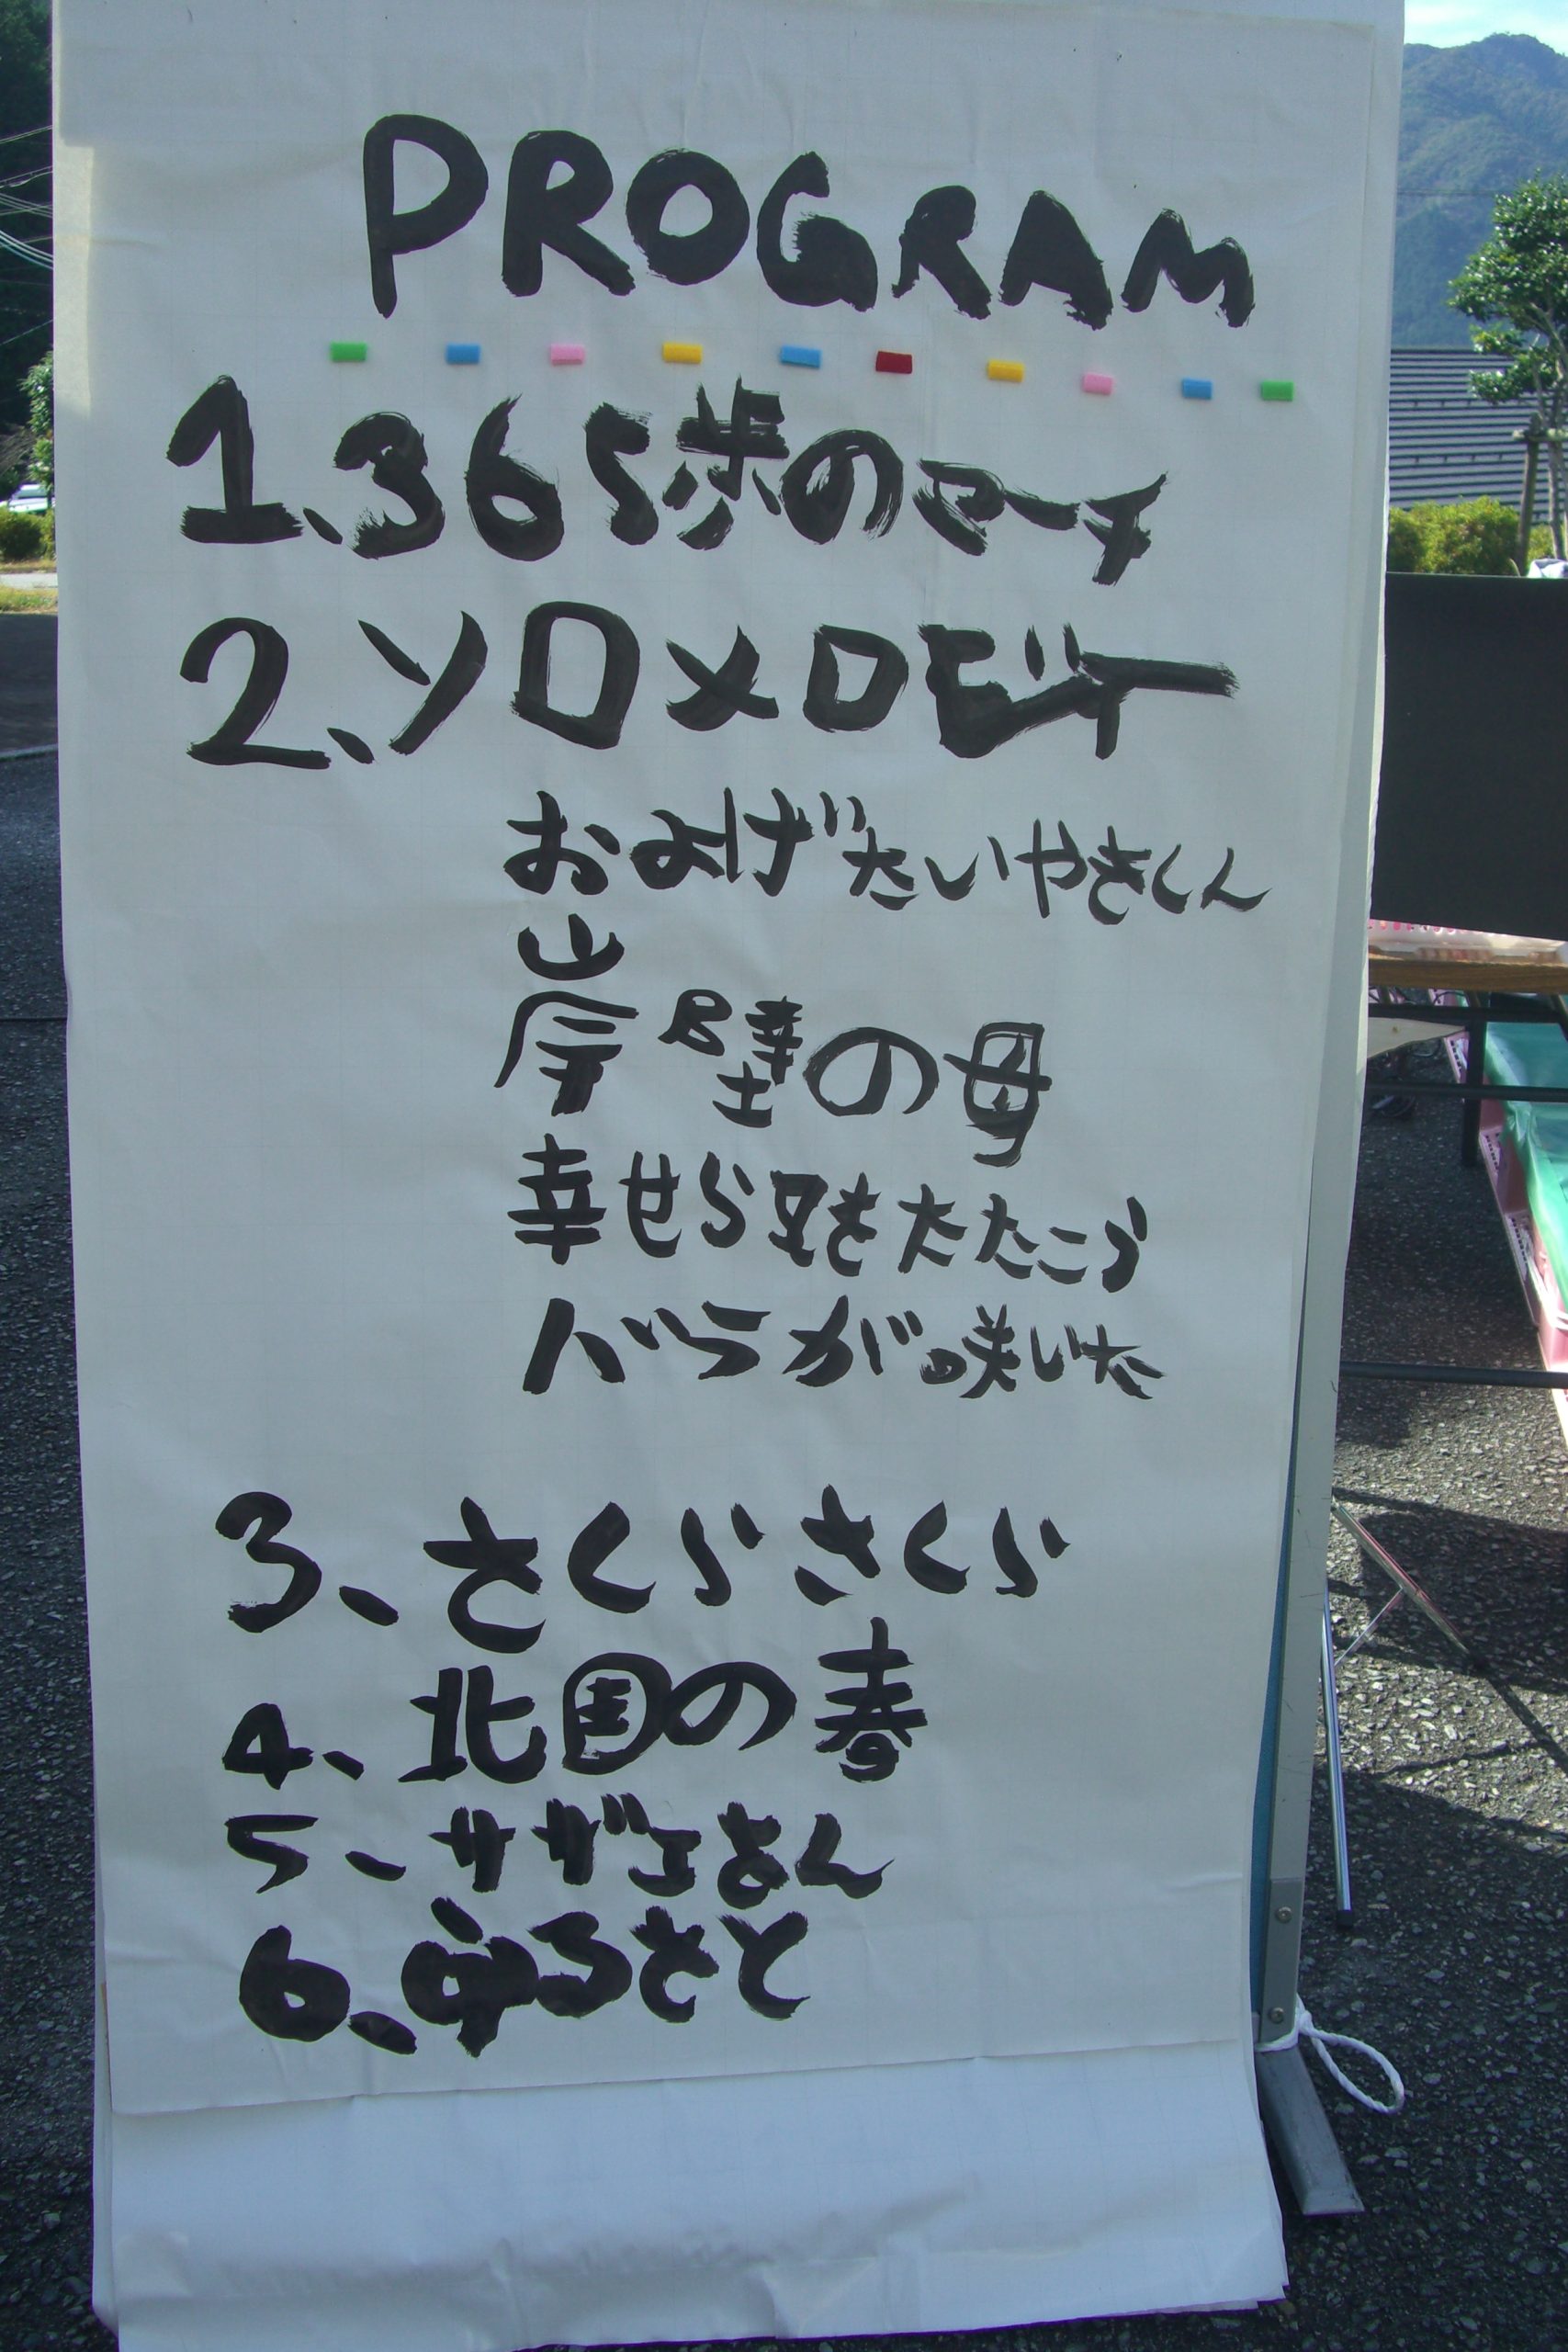 PROGRAM
1、365歩のマーチ
2、ソロメロモジー
およげたいやきくん
岸壁の母
幸せら足をたたこう
バラが咲いた
3、さくらさくら
4、北国の春
5、サザエさん
6、ふるさと